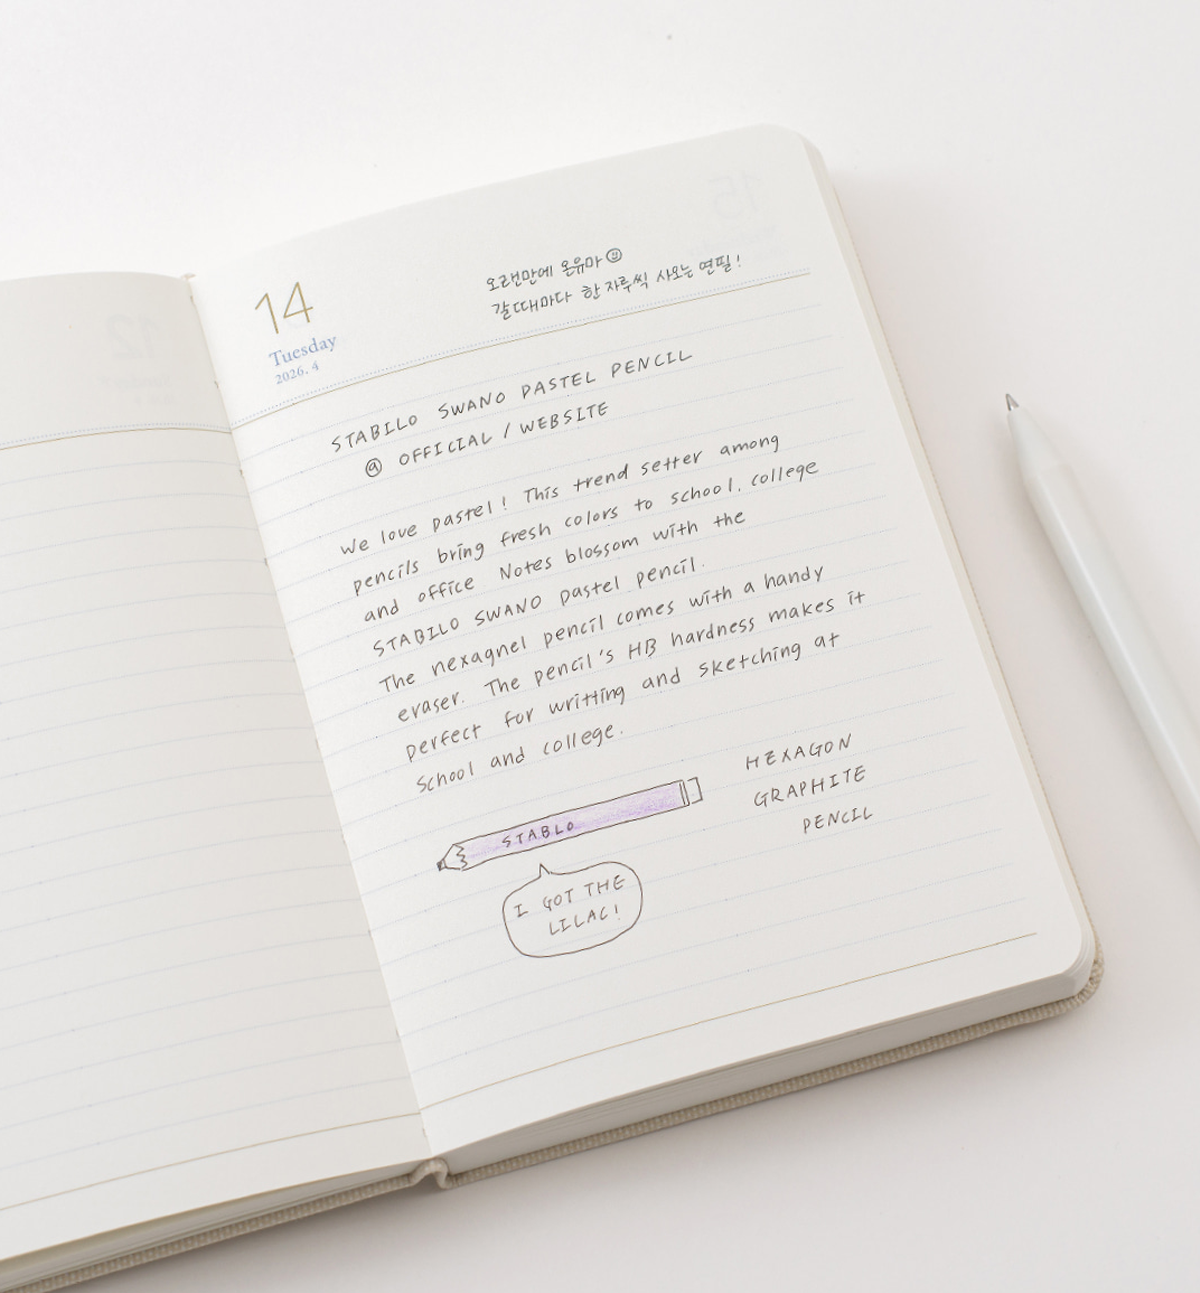 14
Tuesday
2026. 4
오랜만에 온유마
갈때마다 한 자루씩 사오는 연필!
STABILO SWANO PASTEL PENCIL
@ OFFICIAL / WEBSITE
We love pastel! This trend setter among
pencils bring fresh colors to school, college
and office Notes blossom with the
STABILO SWANO pastel pencil.
The nexagnel pencil comes with a handy
eraser. The pencil's HB hardness makes it
perfect for writting and sketching at
school and college.
HEXAGON
GRAPHITE
PENCIL
STABLO
I GOT THE
LILAC!